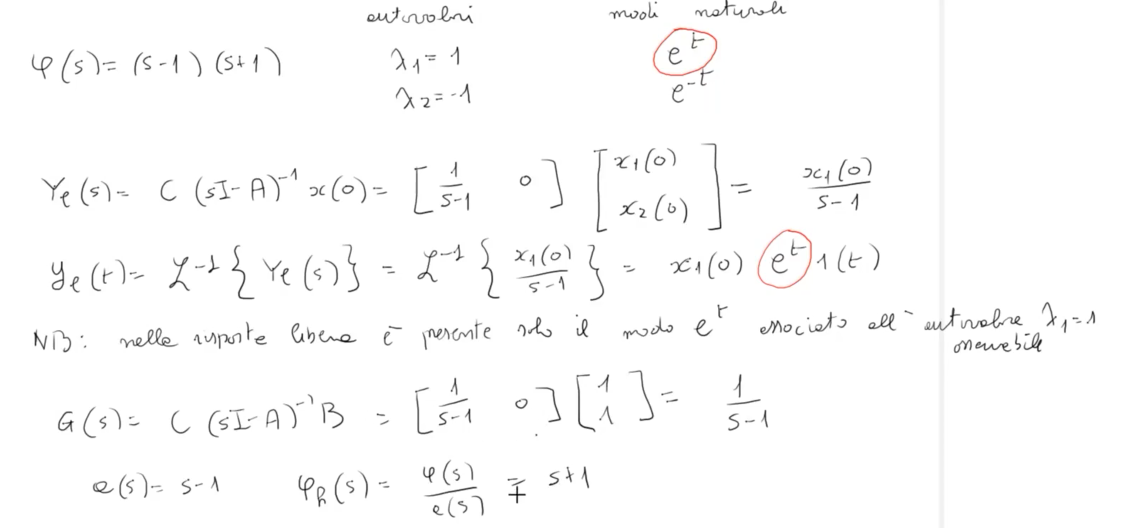 autovalori modi naturali
φ(s) = (s-1) (s+1) λ₁ = 1 e^t
λ₂ = -1 e^-t
Yℓ(s) = C (sI-A)⁻¹ x(0) = [1/(s-1) 0] [x₁(0) x₂(0)] = x₁(0)/(s-1)
yℓ(t) = ℒ⁻¹ { Yℓ(s) } = ℒ⁻¹ { x₁(0)/(s-1) } = x₁(0) e^t 1(t)
NB: nella risposta libera è presente solo il modo e^t associato all'autovalore λ₁=1
osservabile
G(s) = C (sI-A)⁻¹ B = [1/(s-1) 0] [1 1] = 1/(s-1)
a(s) = s-1 φh(s) = φ(s)/a(s) = s+1